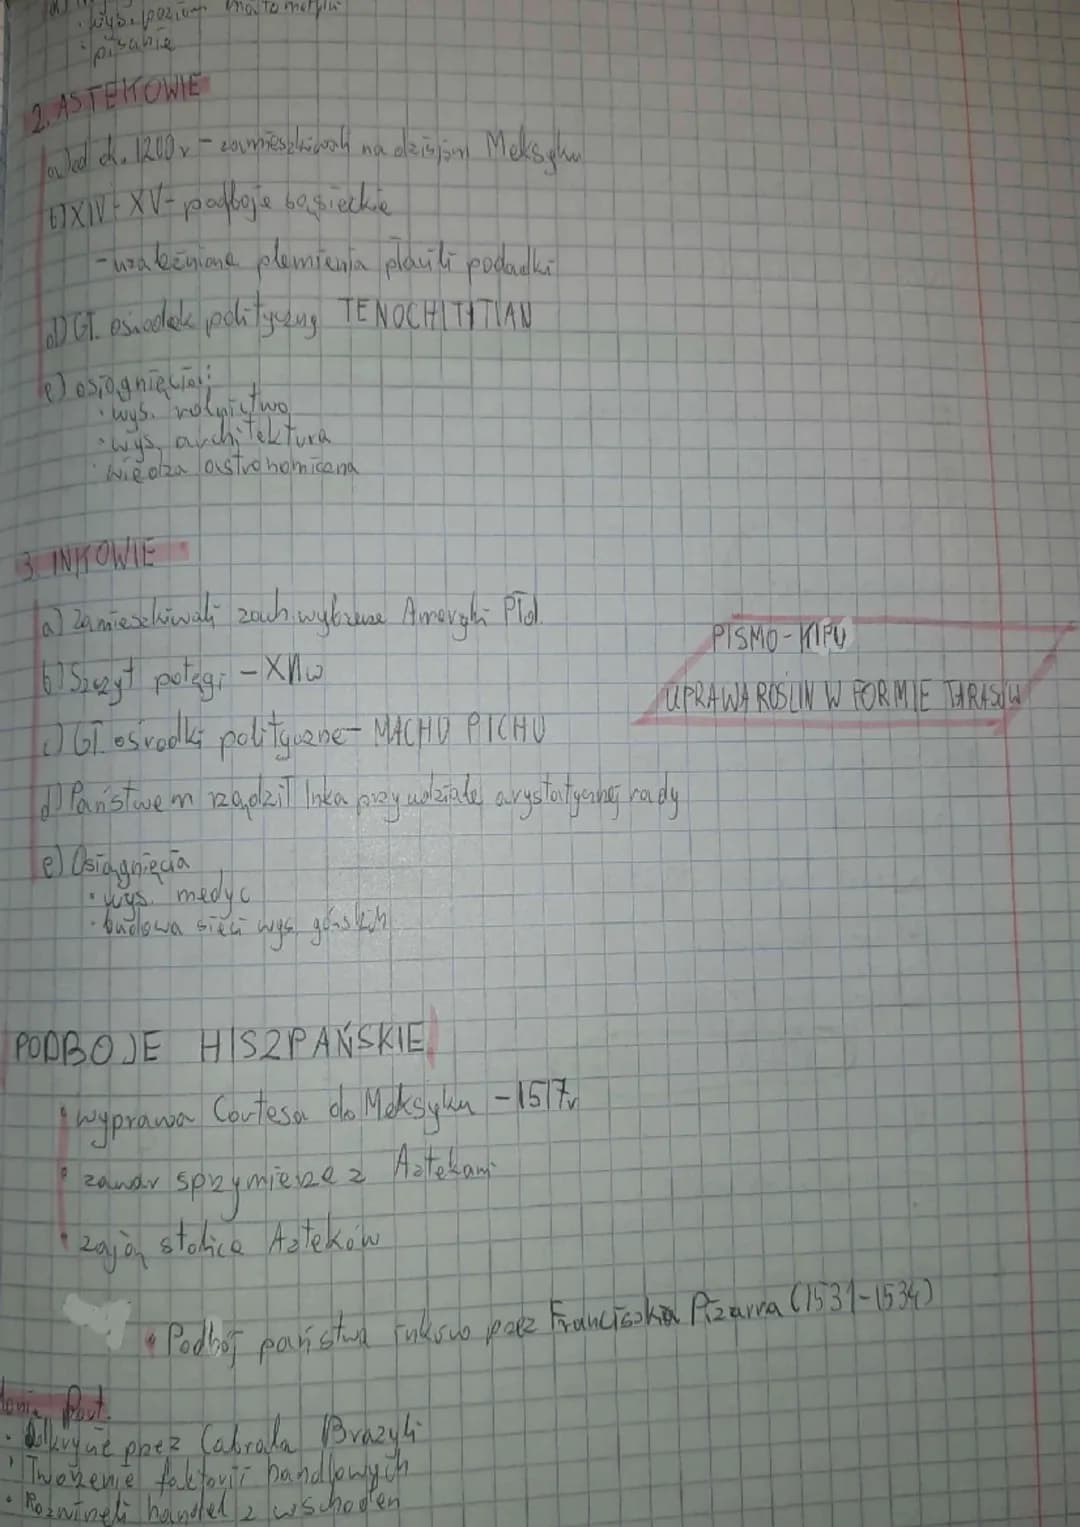 pisanie
2. ASTEKOWIE
a) od ok. 1200 r - zamieszkiwali na dzisjsm Meksyku
b) XIV - XV - podboje sąsieckie
- uzależnione plemienia płacili podadki
d) Gł. osiodek polityczny TENOCHTITTIAN
e) osiągnięcia:
• wys. rolnictwo
• wys. architektura
• wiedza astronomiczna
3. INKOWIE
a) Zamieszkiwali zach. wybrzeże Ameryki Płd.
b) Szczyt potęgi - XIIw
c) Gł ośrodki polityczne - MACHU PICHU
d) Państwem rządził Inka przy udziale arystotycznej rady
e) Osiągnięcia
• wys. medyc
• budowa sieci wys. górskich
PISMO - KIPU
UPRAWA ROŚLIN W FORMIE TARASÓW
PODBOJE HISZPAŃSKIE
• wyprawa Cortesa do Meksyku - 1517r
• zawar sprzymierze z Aztekami
• zajął stolice Azteków
• Podbój państwa inków przez Franciszka Pizarra (1531-1534)
Port.
• Odkrycie przez Cabrala Brazyli
• Tworzenie faktorii handlowych
• Rozwineli handel z wschoden